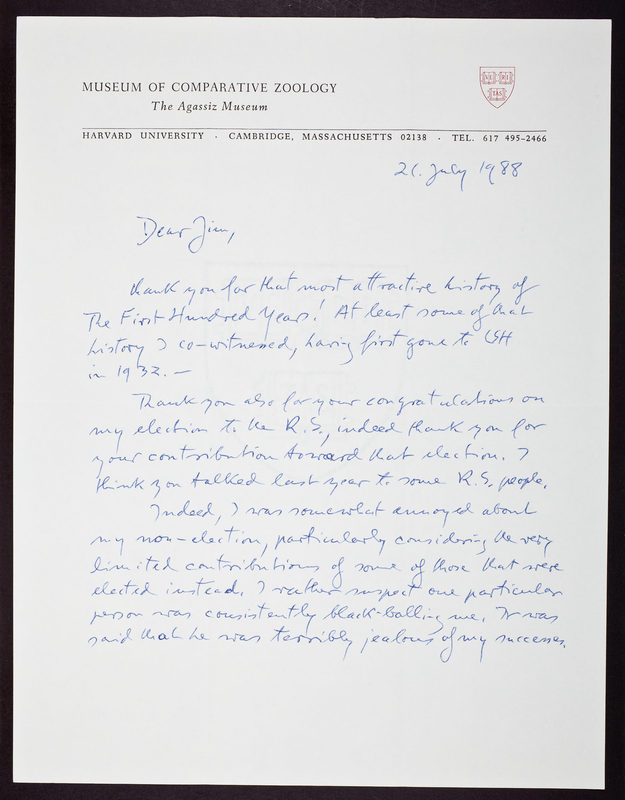 MUSEUM OF COMPARATIVE ZOOLOGY
The Agassiz Museum
VE RI
TAS
HARVARD UNIVERSITY · CAMBRIDGE, MASSACHUSETTS 02138 · TEL. 617 495-2466
21. July 1988
Dear Jim,
thank you for that most attractive history of
The First Hundred Years! At least some of that
history I co-witnessed, having first gone to CSH
in 1932. —
Thank you also for your congratulations on
my election to the R.S., indeed thank you for
your contribution toward that election. I
think you talked last year to some R.S. people.
Indeed, I was somewhat annoyed about
my non-election, particularly considering the very
limited contributions of some of those that were
elected instead. I rather suspect one particular
person was consistently black-balling me. It was
said that he was terribly jealous of my successes.